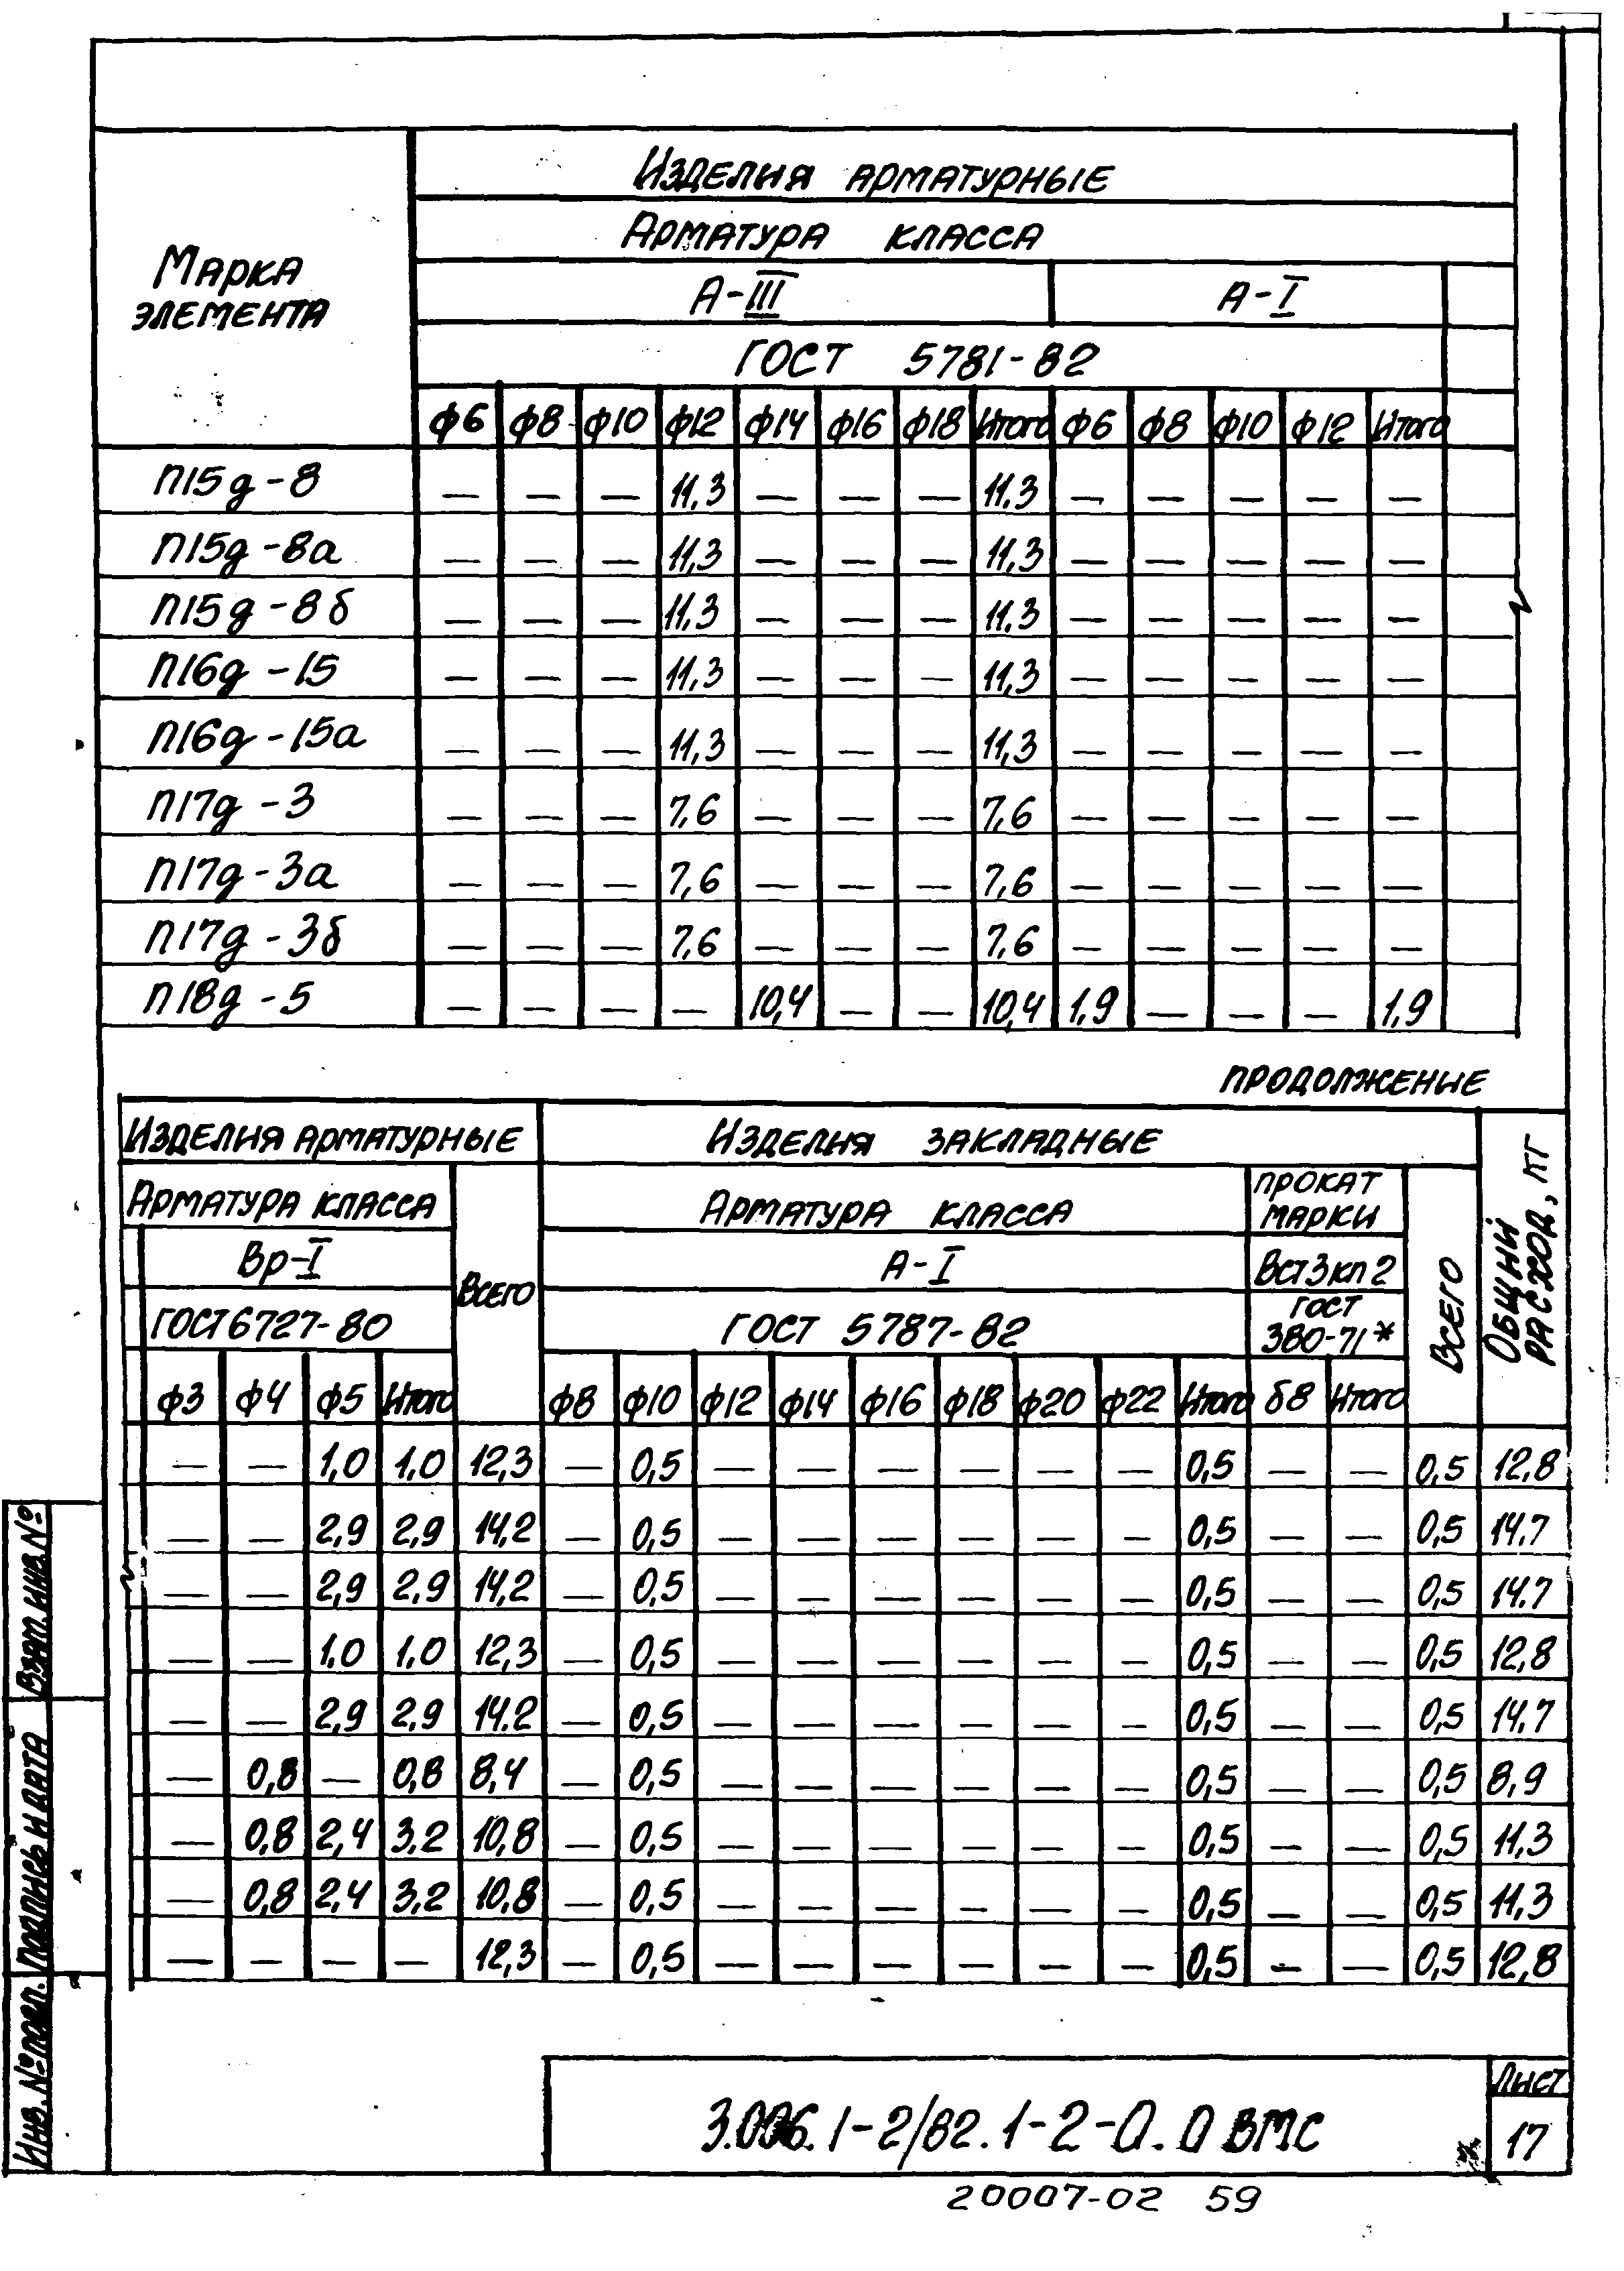 Марка элемента
Изделия арматурные
Арматура класса
А-III А-I
ГОСТ 5781-82
ф6 ф8 ф10 ф12 ф14 ф16 ф18 Итого ф6 ф8 ф10 ф12 Итого
П15д-8 — — — 11,3 — — — 11,3 — — — — —
П15д-8а — — — 11,3 — — — 11,3 — — — — —
П15д-8б — — — 11,3 — — — 11,3 — — — — —
П16д-15 — — — 11,3 — — — 11,3 — — — — —
П16д-15а — — — 11,3 — — — 11,3 — — — — —
П17д-3 — — — 7,6 — — — 7,6 — — — — —
П17д-3а — — — 7,6 — — — 7,6 — — — — —
П17д-3б — — — 7,6 — — — 7,6 — — — — —
П18д-5 — — — — 10,4 — — 10,4 1,9 — — — 1,9
продолжение
Изделия арматурные Изделия закладные Общий расход, кг
Арматура класса Всего Арматура класса прокат марки Всего
Вр-I А-I Вст3кп2
ГОСТ 6727-80 ГОСТ 5787-82 ГОСТ 380-71*
ф3 ф4 ф5 Итого ф8 ф10 ф12 ф14 ф16 ф18 ф20 ф22 Итого δ8 Итого
— — 1,0 1,0 12,3 — 0,5 — — — — — — 0,5 — — 0,5 12,8
— — 2,9 2,9 14,2 — 0,5 — — — — — — 0,5 — — 0,5 14.7
— — 2,9 2,9 14,2 — 0,5 — — — — — — 0,5 — — 0,5 14.7
— — 1.0 1,0 12,3 — 0,5 — — — — — — 0,5 — — 0,5 12,8
— — 2,9 2,9 14.2 — 0,5 — — — — — — 0,5 — — 0,5 14.7
— 0,8 — 0,8 8,4 — 0,5 — — — — — — 0,5 — — 0,5 8,9
— 0,8 2,4 3,2 10,8 — 0,5 — — — — — — 0,5 — — 0,5 11,3
— 0,8 2,4 3,2 10,8 — 0,5 — — — — — — 0,5 — — 0,5 11,3
— — — — 12,3 — 0,5 — — — — — — 0,5 — — 0,5 12,8
Взам. инв. №
Подпись и дата
Инв. № подл.
3.006.1-2/82.1-2-0.0 ВМС
Лист
17
20007-02 59